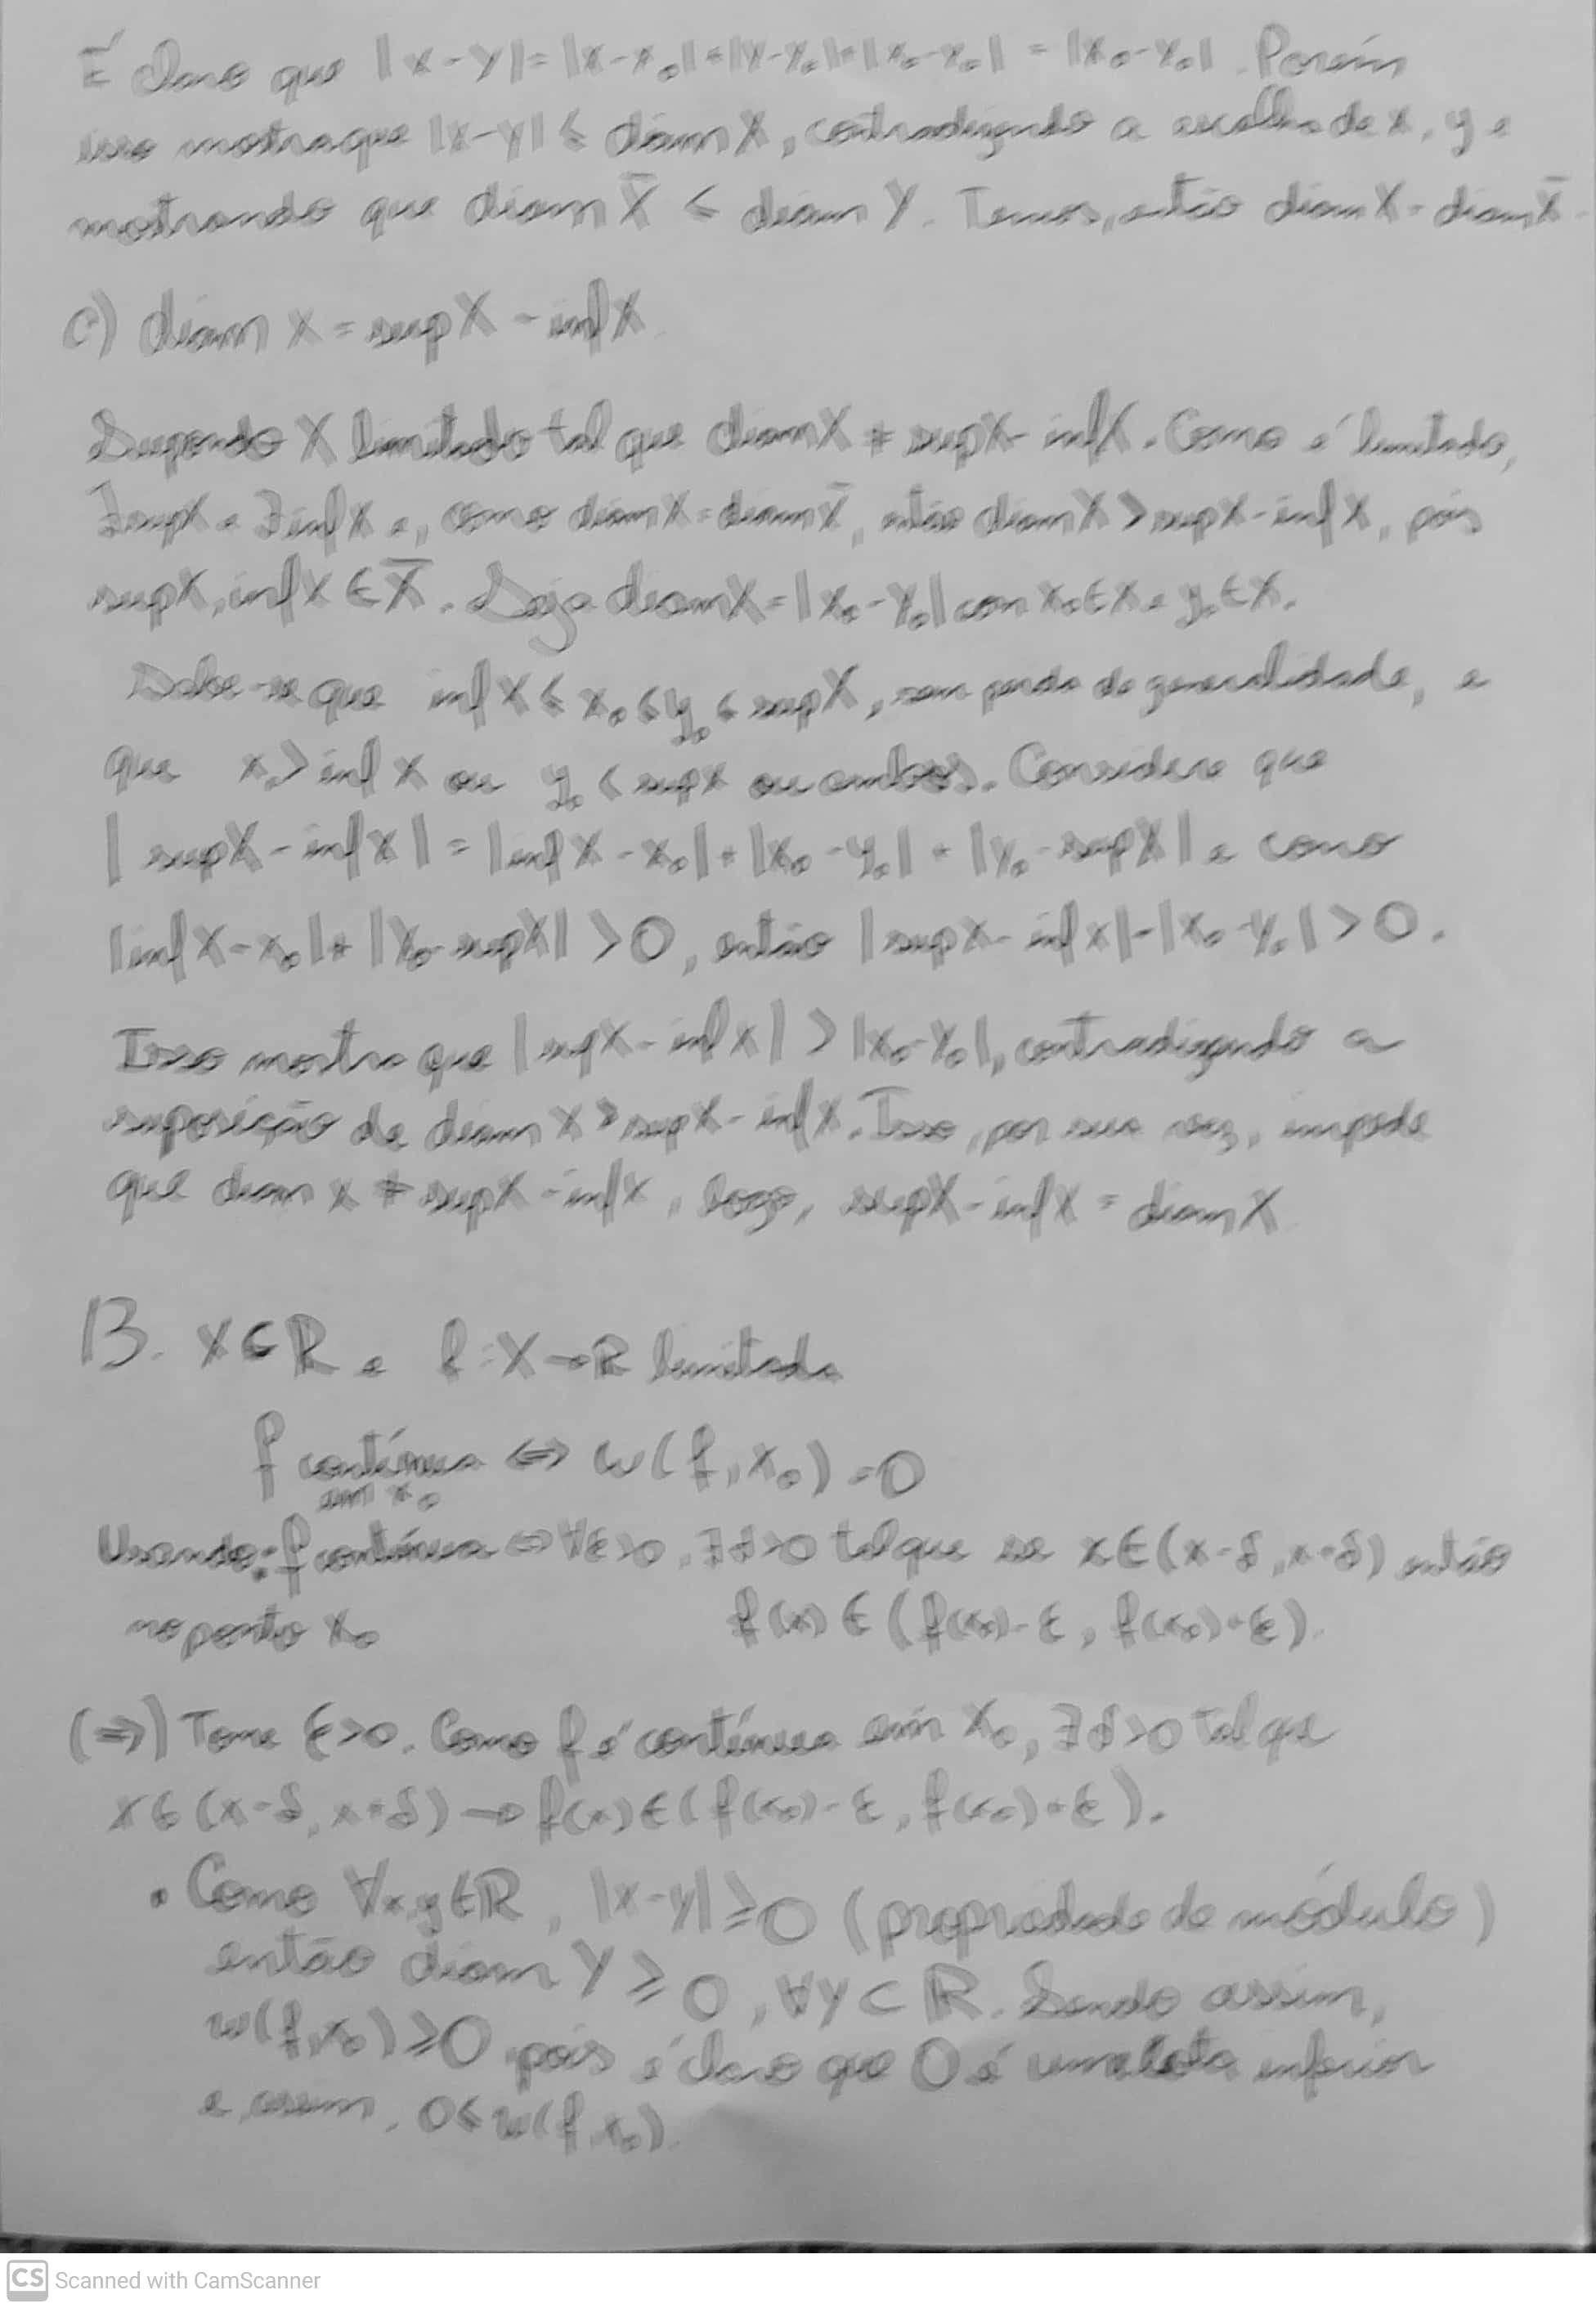 É claro que |x-y|=|x-x₀|+|y-y₀|+|x₀-y₀| = |x₀-y₀|. Porém
isso mostra que |x-y| ≤ diam X, contradizendo a escolha de x, y e
mostrando que diam X̄ ≤ diam Y. Temos, então diam X = diam X̄.
c) diam X = sup X - inf X.
Supondo X limitado tal que diam X ≠ sup X - inf X. Como é limitado,
∃ sup X e ∃ inf X e, como diam X = diam X̄, então diam X > sup X - inf X, pois
sup X, inf X ∈ X̄. Seja diam X = |x₀-y₀| com x₀ ∈ X e y₀ ∈ X.
Sabe-se que inf X ≤ x₀ ≤ y₀ ≤ sup X, sem perda de generalidade, e
que x₀ > inf X ou y₀ < sup X ou ambos. Considere que
|sup X - inf X| = |inf X - x₀| + |x₀ - y₀| + |y₀ - sup X| e como
|inf X - x₀| + |y₀ - sup X| > 0, então |sup X - inf X| - |x₀ - y₀| > 0.
Isso mostra que |sup X - inf X| > |x₀ - y₀|, contradizendo a
suposição de diam X > sup X - inf X. Isso, por sua vez, impede
que diam X ≠ sup X - inf X, logo, sup X - inf X = diam X
13. X ⊂ R e f: X → R limitada
f contínua ⇔ w(f, x₀) = 0
em x₀
Usando: f contínua ⇔ ∀ε>0, ∃δ>0 tal que se x ∈ (x-δ, x+δ) então
no ponto x₀ f(x) ∈ (f(x₀)-ε, f(x₀)+ε).
(⇒) Tome ε>0. Como f é contínua em x₀, ∃δ>0 tal que
x ∈ (x-δ, x+δ) → f(x) ∈ (f(x₀)-ε, f(x₀)+ε).
• Como ∀x,y ∈ R, |x-y| ≥ 0 (propriedade de módulo)
então diam Y ≥ 0, ∀Y ⊂ R. Sendo assim,
w(f, x₀) ≥ 0 pois é claro que 0 é uma cota inferior
e assim, 0 ≤ w(f, x₀).
CS Scanned with CamScanner